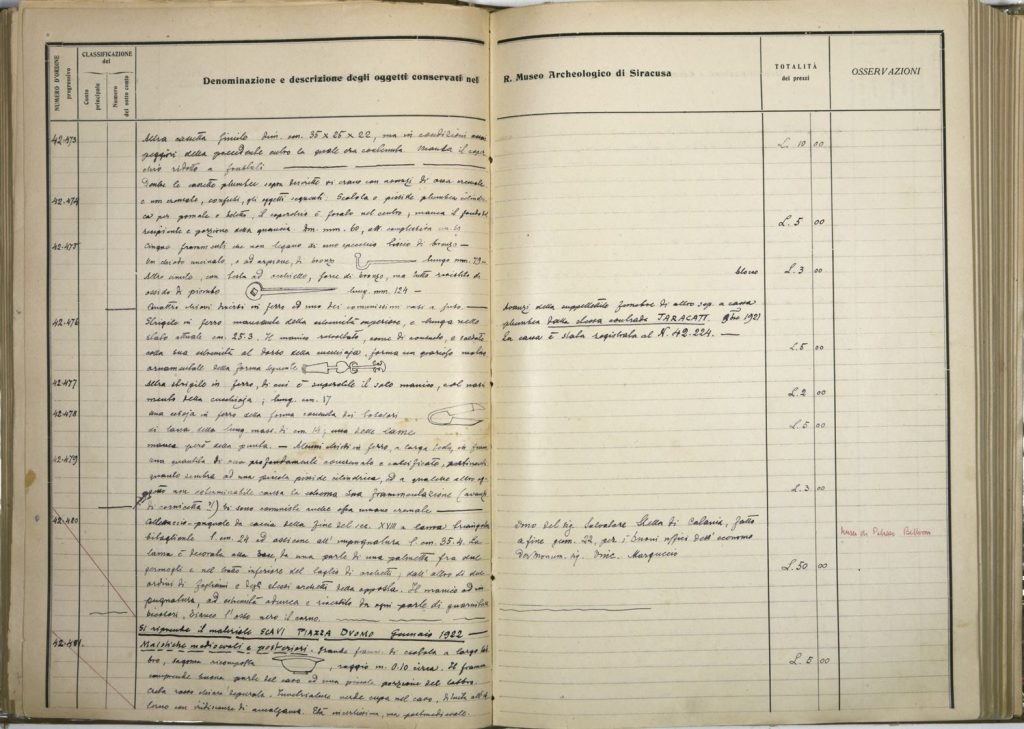 NUMERO D'ORDINE progressivo
CLASSIFICAZIONE del
Conto principale
Numero del sotto conto
Denominazione e descrizione degli oggetti conservati nel R. Museo Archeologico di Siracusa
TOTALITÀ dei prezzi
OSSERVAZIONI
42473
Altra cassetta simile dim. cm. 35 x 25 x 22, ma in condizioni
peggiori della precedente entro la quale era contenuta. Manca il coper
chio ridotto a frustuli
L. 10 00
Dentro le cassette plumbee sopra descritte vi erano con avanzi di ossa cremate
42474
e un cremato, confusi, gli oggetti seguenti: Scatola o pisside plumbea cilindri
ca per pomate o belletto, il coperchio è forato nel centro; manca il fondo del
recipiente e porzione della guancia. Dm. mm. 60, alt. complessiva
L. 5 00
42475
Cinque frammenti che non legano di uno specchio liscio di bronzo —
Un chiodo uncinato, o ad arpione, di bronzo lungo mm. 79 —
Altro simile, con testa ad occhiello, forse di bronzo, ma tutto rivestito di
blocco L. 3 00
ossido di piombo lung. mm. 124 —
Quattro chiodi diversi in ferro ed uno dei comunissimi vasi a fuso. —
42476
Strigile in ferro mancante della estremità superiore, e lungo nello
stato attuale cm. 25.3. Il manico ripiegato, come di consueto, e saldato
colla sua estremità al dorso della cucchiaja, forma un grazioso motivo
ornamentale della forma seguente
Avanzi della suppellettile funebre di altro sep. a cassa
plumbea dalla stessa contrada TARACATI. 9bre 1921
la cassa è stata registrata al N. 42.224. —
L. 5 00
42477
Altro strigile in ferro, di cui è superstite il solo manico, e col nasci
mento della cucchiaja; lung. cm. 17
L. 2 00
42478
Una cesoja in ferro della forma consueta dei tosatori
di lana della lung. mass. di cm. 14; una delle lame
manca però della punta. — Alcuni chiodi in ferro, a larga testa, ed
L. 5 00
42479
una quantità di osso profondamente concrezionato e calcificato, pertinenti
quanto sembra ad una piccola pisside cilindrica, ed a qualche altro og
getto non determinabile causa la estrema sua frammentazione (avanzi
di cornicetta ?) Vi sono commiste anche ossa umane cremate —
L. 3 00
42480
Coltellaccio-pugnale da caccia della fine del sec. XVIII a lama triangolare
bitagliente l. cm. 24 ed assieme all'impugnatura l. cm. 35.4. La
lama è decorata alla base, da una parte di una palmetta fra due
germogli e nel tratto inferiore del taglio di archetti; dall'altro di due
ordini di zaffrini e degli stessi archetti della opposta. Il manico ad im
pugnatura, ad estremità adunca è rivestito da ogni parte di guarnitura
bicolori, bianco l'osso nero il corno.
Dono del Sig. Salvatore Stella di Catania, fatto
a fine genn. 22, per i buoni uffici dell'economo
dei Monum. Sig. Vinc. Marguccio
L. 50 00
Museo di Palazzo Bellomo
Si riprende il materiale SCAVI PIAZZA DUOMO Gennaio 1922 —
42481
Maioliche medioevali e posteriori. Grande framm. di scodella a largo lab
bro, sagoma ricomposta, raggio m. 0.10 circa. Il framm.
comprende buona parte del cavo ed una piccola porzione del labbro.
Creta rosso chiara depurata. Invetriatura verde cupa nel cavo, limita all'es
terno con sbavature di amalgama. Età incertissima, ma postmedioevale.
L. 5 00